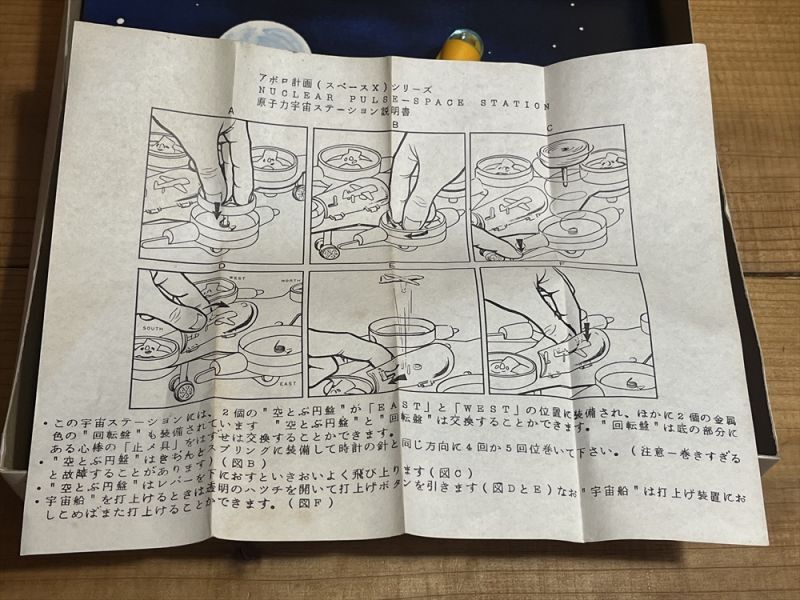 アポロ計画(スペースX)シリーズ
NUCLEAR PULSE—SPACE STATION
原子力宇宙ステーション説明書
A
B
C
D
WEST
NORTH
SOUTH
EAST
E
F
・この宇宙ステーションには、2個の"空とぶ円盤"が「EAST」と「WEST」の位置に装備され、ほかに2個の金属
色の"回転盤"も装備されています "空とぶ円盤"と"回転盤"は交換することができます。"回転盤"は底の部分に
ある心棒の「止メ具」をはずせば交換することができます。
・"空とぶ円盤"はきちんとスプリングに装備して時計の針と同じ方向に4回か5回位巻いて下さい。(注意—巻きすぎる
と故障することがあります)(図B)
・"空とぶ円盤"はレバーを下におすといきおいよく飛び上ります(図C)
・"宇宙船"を打上げるときは透明のハツチを開いて打上げボタンを引きます(図DとE)なお"宇宙船"は打上げ装置にお
しこめばまた打上げることができます。(図F)